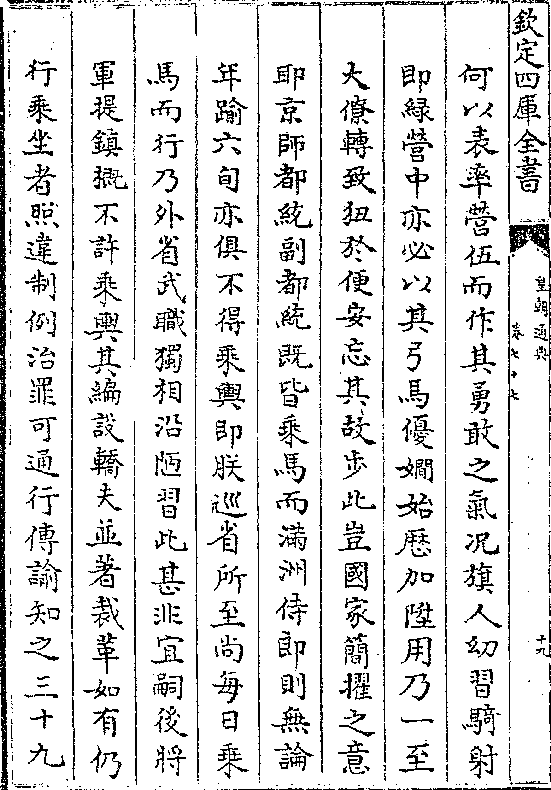 欽定四庫全書
皇朝通典
卷七十七
十九
何以表率營伍而作其勇敢之氣况旗人幼習騎射
即緑營中亦必以其弓馬優嫺始歴加陞用乃一至
大僚轉致狃於便安忘其故步此豈國家簡擢之意
耶京師都統副都統既皆乘馬而滿洲侍郎則無論
年踰六旬亦俱不得乘輿即朕巡省所至尚每日乘
馬而行乃外省武職獨相沿陋習此甚非宜嗣後將
軍提鎮概不許乘輿其編設轎夫並著裁革如有仍
行乘坐者照違制例治罪可通行傳諭知之三十九